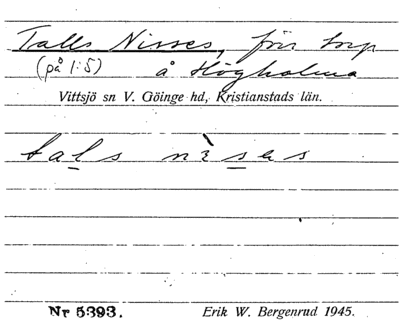 Talls Nisses, förr torp
(på 1:5) å Högholma
Vittsjö sn V. Göinge hd, Kristianstads län.
tals nìsas
Nr 5393. Erik W. Bergenrud 1945.